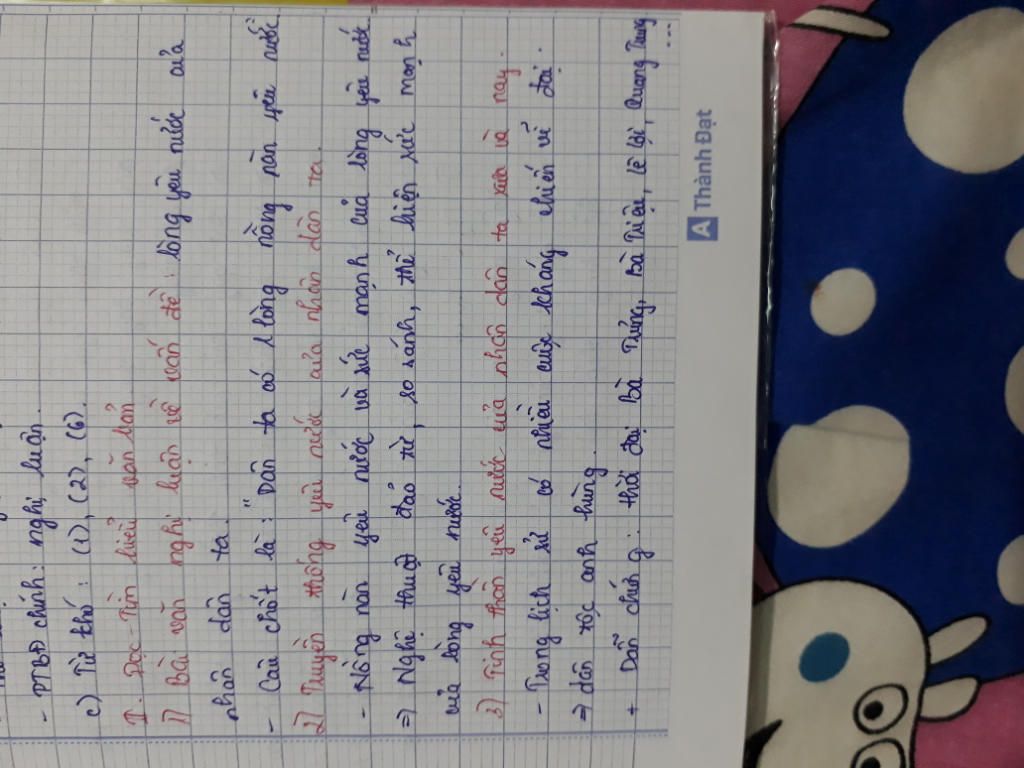 - PTBĐ chính: nghị luận.
c) Từ thó: (1), (2), (6).
II. Đọc - Tìm hiểu văn bản
1) Bài văn nghị luận về vấn đề: lòng yêu nước của
nhân dân ta.
- Câu chốt là: "Dân ta có 1 lòng nồng nàn yêu nước
2) Truyền thống yêu nước của nhân dân ta.
- Nồng nàn yêu nước và sức mạnh của lòng yêu nước
⇒ Nghệ thuật đảo từ, so sánh, thể hiện sức mạnh
của lòng yêu nước.
3) Tinh thần yêu nước của nhân dân ta xưa và nay.
- Trong lịch sử có nhiều cuộc kháng chiến vĩ đại.
⇒ dân tộc anh hùng.
+ Dẫn chứng: thời đại Bà Trưng, Bà Triệu, Lê Lợi, Quang Trung
...
A Thành Đạt